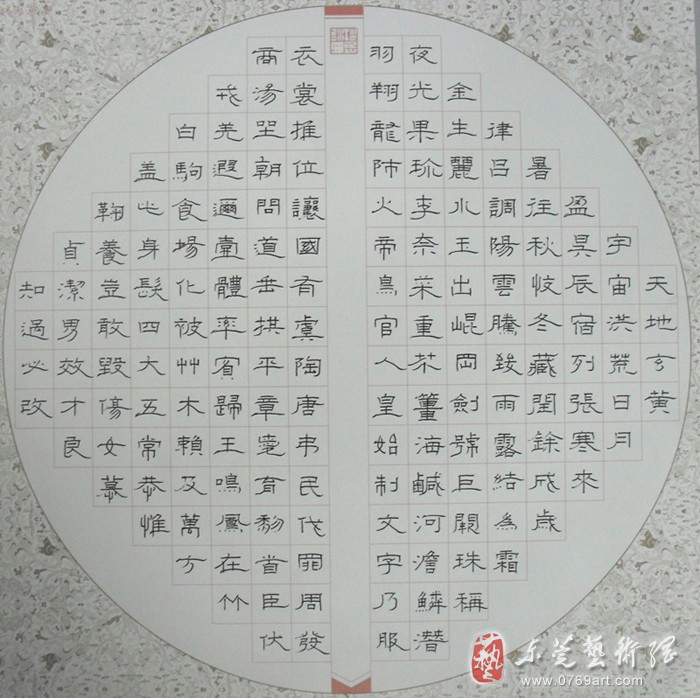 天地玄黃
宇宙洪荒日月
盈昃辰宿列張寒來
暑往秋收冬藏閏餘成歲
律呂調陽雲騰致雨露結為霜
金生麗水玉出崐岡劍號巨闕珠稱
夜光果珎李柰菜重芥薑海鹹河澹鱗潛
羽翔龍師火帝鳥官人皇始制文字乃服
衣裳推位讓國有虞陶唐弔民伐罪周發
商湯坐朝問道垂拱平章愛育黎首臣伏
戎羌遐邇壹體率賓歸王鳴鳳在竹
白駒食場化被艸木賴及萬方
盖此身髮四大五常恭惟
鞠養豈敢毀傷女慕
貞潔男效才良
知過必改
藝
东莞藝術網
www.0769art.com